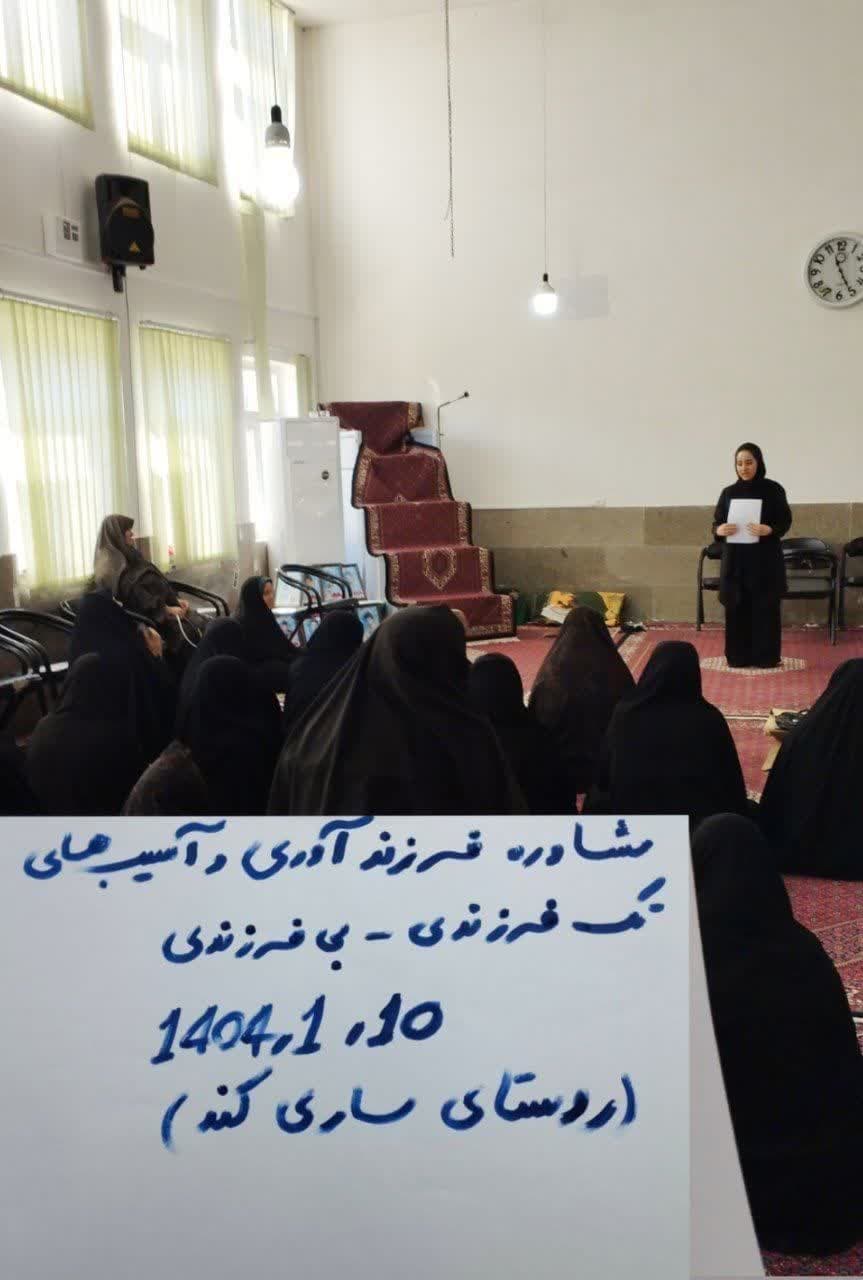 مشاوره فرزند آوری و آسیب های
تک فرزندی - بی فرزندی
1404,1,10
(روستای ساری کند)